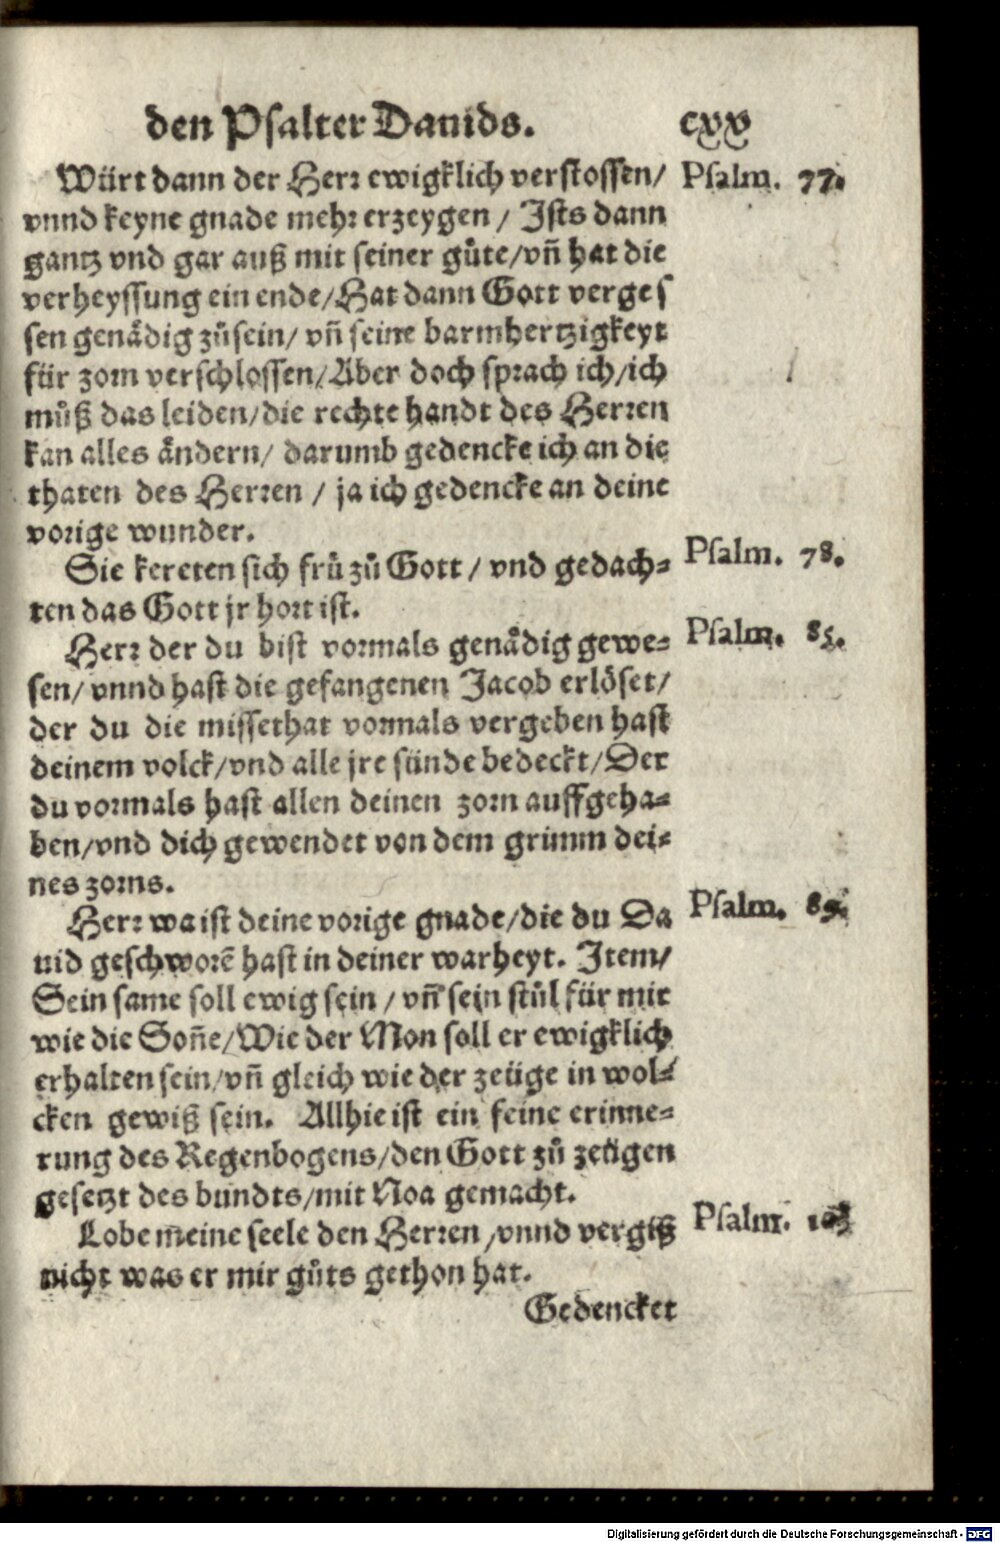 den Psalter Dauids. cxx
Würt dann der Herr ewigklich verstossen/ Psalm. 77.
vnnd keyne gnade mehr erzeygen / Ists dann
gantz vnd gar auß mit seiner gůte/vñ hat die
verheyssung ein ende/Hat dann Gott verges
sen genådig zůsein/ vñ seine barmhertzigkeyt
für zorn verschlossen/Aber doch sprach ich/ich
můß das leiden/die rechte handt des Herren
kan alles åndern/ darumb gedencke ich an die
thaten des Herren / ja ich gedencke an deine
vorige wunder.
Sie kereten sich frů zů Gott / vnd gedach⸗ Psalm. 78.
ten das Gott jr hort ist.
Herr der du bist vormals genådig gewe⸗ Psalm. 85.
sen/ vnnd hast die gefangenen Jacob erlöset/
der du die missethat vormals vergeben hast
deinem volck/vnd alle jre sünde bedeckt/Der
du vormals hast allen deinen zorn auffgeha⸗
ben/vnd dich gewendet von dem grimm dei⸗
nes zorns.
Herr wa ist deine vorige gnade/die du Da Psalm. 89.
uid geschworē hast in deiner warheyt. Item/
Sein same soll ewig sein / vñ sein stůl für mir
wie die Soñe/Wie der Mon soll er ewigklich
erhalten sein/vñ gleich wie der zeüge in wol⸗
cken gewiß sein. Allhie ist ein feine erinne⸗
rung des Regenbogens/den Gott zů zeügen
gesetzt des bundts/mit Noa gemacht.
Lobe meine seele den Herren /vnnd vergiß Psalm. 103
nicht was er mir gůts gethon hat.
Gedencket
Digitalisierung gefördert durch die Deutsche Forschungsgemeinschaft - DFG